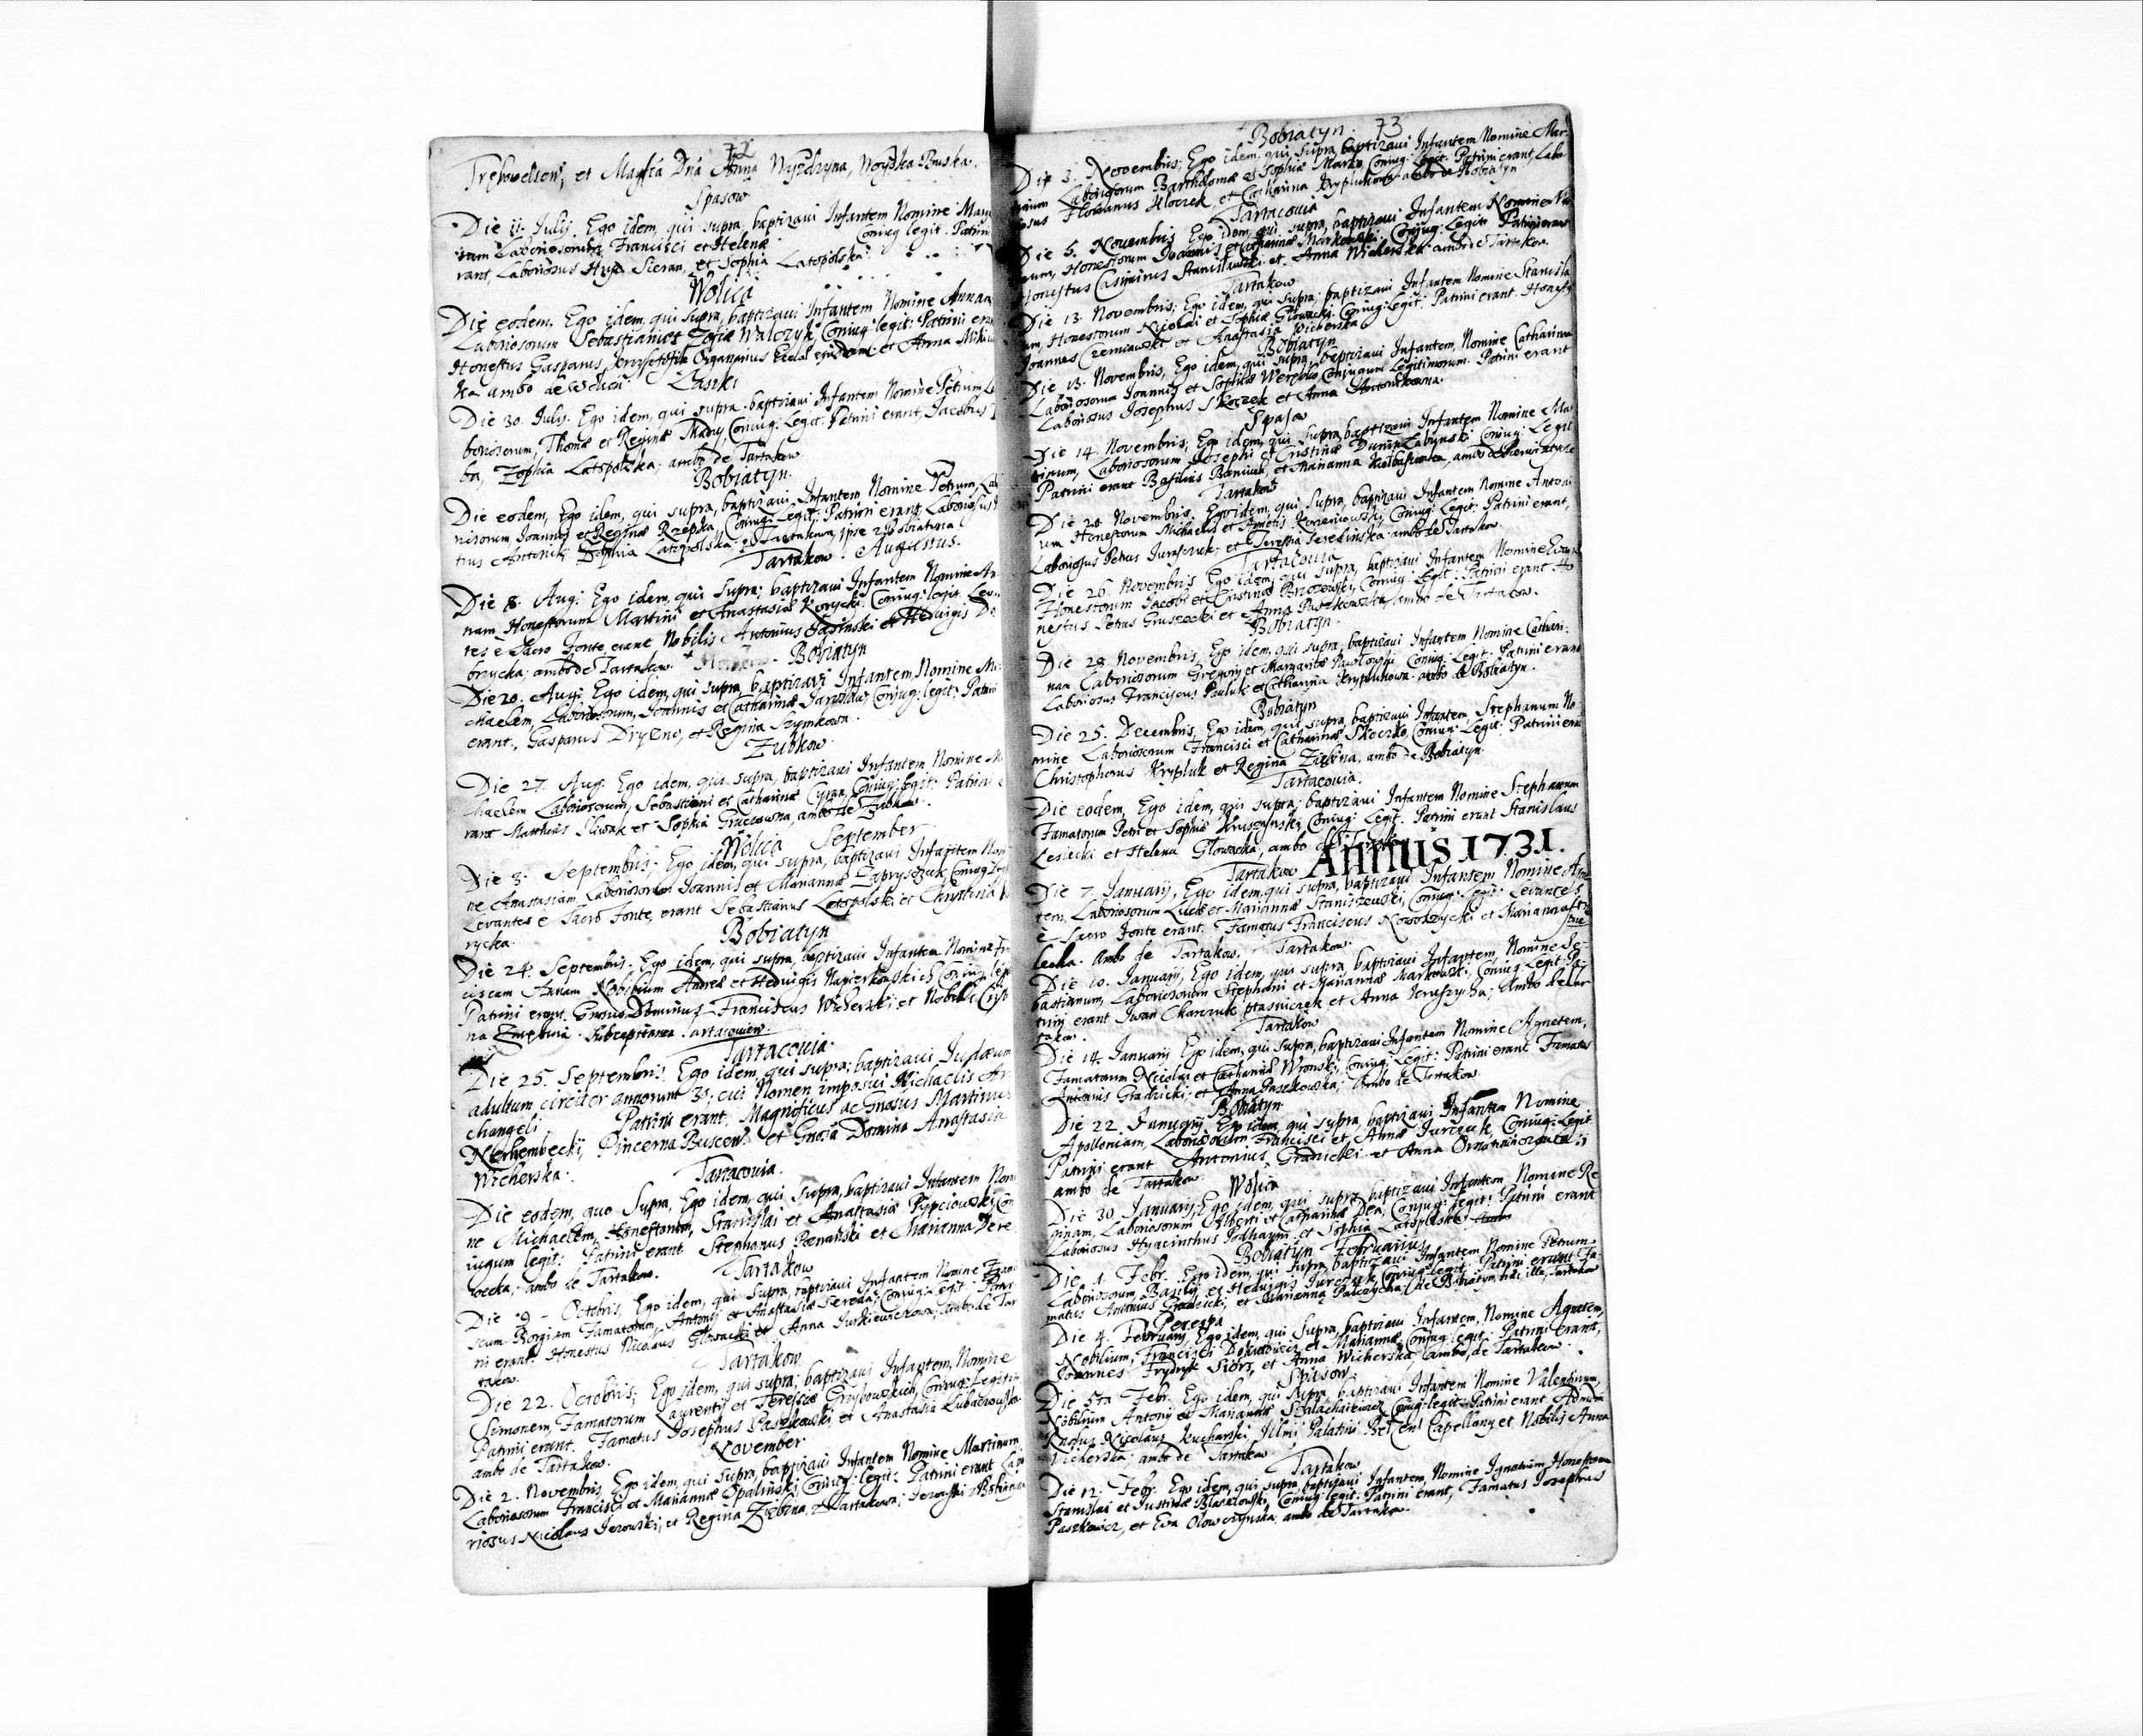 72
et Magfca Dna Anna Wyszczyna, Woyska Buska.
Spasow
Die 11. July. Ego idem, qui supra, baptizavi Infantem Nomine
Laboriosorum Francisci et Helenæ Coniug legit. Patrini
rant, Laboriosus Sieran, et Sophia Latopolska.
Wolica
Die eodem, Ego idem, qui supra, baptizavi Infantem Nomine Annam
Laboriosorum Sebastiani et Zofiæ Walczyk, Coniug: legit: Patrini
Honestus Gasparus, Organarius et Anna
ka ambo de
Laszki
Die 30. July. Ego idem, qui supra, baptizavi Infantem Nomine Petrum
boriosorum, Thomæ et Reginæ Coniug: Legit: Patrini erant, Jacobus
ba, Zophia Latopolska; ambo de Tartakow
Bobiatyn.
Die eodem, Ego idem, qui supra, baptizavi Infantem Nomine Petrum,
riosorum Joannis et Reginæ Rzepka, Coniug: Legit: Patrini erant Laboriosus
Zophia Latopolska, z Tartakowa, ipse z Bobiatyna
Tartakow Augustus.
Die 8. Aug: Ego idem, qui supra; baptizavi Infantem Nomine An
nam Honestorum Martini et Anastasiæ Korycki Coniug: legit. Levan
tes e Sacro Fonte, erant Nobilis Antonius Jasinski et Hedvigis Do
brzycka. ambo de Tartakow.
Bobiatyn
Die 20. Aug: Ego idem, qui supra, baptizavi Infantem Nomine Mi
chaelem, Laboriosorum, Joannis et Catharinæ Coniug: legit: Patrini
erant, Gasparus et Regina Szymkowa.
Zubkow.
Die 27. Aug: Ego idem, qui supra, baptizavi Infantem Nomine Mi
chaelem Laboriosorum, Sebastiani et Catharinæ Cyran, Coniug: legit: Patrini e
rant Matthias Sliwak et Sophia ambo de Zubkow.
Wolica September
Die 3. Septembris; Ego idem, qui supra, baptizavi Infantem Nomi
ne Anastasiam, Laboriosorum Joannis et Mariannæ Coniug
Levantes e Sacro Fonte, erant Sebastianus Latopolski et Chrystina
rycka.
Bobiatyn
Die 24. Septembris. Ego idem, qui supra, baptizavi Infantem Nomine Fr
ciscam Annam Nobilium Andreæ et Hedvigis Napierkowskich Coniug legit
Patrini erant Dominus Franciscus Wicherski, et Nobilis
na
Tartacovia.
Die 25. Septembris. Ego idem, qui supra; baptizavi Judæum
adultum circiter annorum 30; cui Nomen imposui Michaelis Ar
changeli. Patrini erant, Magnificus ac Gnosus Martinus
Pincerna Buscen. et Gnosa Domina Anastasia
Wicherska.
Tartacovia.
Die eodem, quo Supra, Ego idem, qui supra, baptizavi Infantem Nomi
ne Michaelem, Honestorum, Stanislai et Anastasiæ Pypciowski, Con
iugum legit: Patrini erant Stephanus et Marianna Tere
ambo de Tartakow.
Tartakow
Die 9 - Octobris, Ego idem, qui supra, baptizavi Infantem Nomine Fran
scum Borgiam Famatorum, Antony et Anastasiæ Sereda, Coniug: Legit; Patri
ni erant. Honestus Nicolaus Glowacki et Anna Jurkiewiczowa, ambo de Tar
takow.
Tartakow
Die 22. Octobris; Ego idem, qui supra; baptizavi Infantem, Nomine
Simonem, Famatorum Laurenty et Teressiæ Grzybowskich, Coniug: Legitim
Patrini erant. Famatus Josephus Paszkowski, et Anastasia Lubaczowska
ambo de Tartakow.
November.
Die 2. Novembris, Ego idem, qui supra, baptizavi Infantem Nomine Martinum
Laboriosorum Francisci et Mariannæ Opalinski, Coniug: legit: Patrini erant Labo
riosus Nicolaus Jezowski, et Regina Ziebina, z Tartakowa; Jezowski z Bobiatyna
Bobiatyn. 73
Die 3. Novembris; Ego idem, qui supra, baptizavi Infantem Nomine Mar
Laboriosorum Bartholomæ et Sophiæ Marko, Coniug: Legit. Patrini erant, Labo
Florianus Kloczek, et Catharina Kryplukowa; ambo de Bobiatyn
Tartacovia
Die 5. Novembris Ego idem, qui supra, baptizavi Infantem Nomine
Honestorum Joannis et Catharinæ Markowski; Coniug: Legit: Patrini erant
Honestus Casimirus Stanislawski et Anna Wicherska: ambo de Tartakow.
Tartakow
Die 13 Novembris; Ego idem, qui supra; baptizavi Infantem Nomine Stanisla
um, Honestorum Nicolai et Sophiæ Glowacki Coniug: Legit; Patrini erant Honestus
Joannes Czerniawski et Anastasia Wicherska
Bobiatyn
Die 13. Novembris, Ego idem, qui supra, baptizavi Infantem, Nomine Catharinam
Laboriosorum Joannis et Sophiæ Coniugum Legitimorum. Patrini erant
Laboriosus Josephus Skoczek et Anna
Spasow
Die 14. Novembris; Ego idem, qui supra, baptizavi Infantem Nomine Ma
Laboriosorum Josephi et Cristinæ Coniug: Legit
Patrini erant Basilius et Marianna ambo
Tartakow
Die 20. Novembris. Ego idem, qui supra, baptizavi Infantem Nomine Antoni
um Honestorum Michaelis et Agnetis Korzeniowski, Coniug: Legit: Patrini erant,
Laboriosus Petrus et Teressia Seredinska. ambo de Tartakow.
Tartacovia
Die 26. Novembris Ego idem, qui supra, baptizavi Infantem Nomine
Honestorum Jacobi et Cristinæ Brzozowski, Coniug: Legit: Patrini erant Ho
nestus Petrus Gruszecki et Anna Paszkowska, ambo de Tartakow.
Bobiatyn.
Die 28 Novembris, Ego idem, qui supra, baptizavi Infantem Nomine Cathari:
nam Laboriosorum Gregory et Margaritæ Pawlowski Coniug: Legit: Patrini erant
Laboriosus Franciscus Pauluk et Catharina Kryplukowa. ambo de Bobiatyn.
Bobiatyn
Die 25. Decembris, Ego idem, qui supra, baptizavi Infantem, Stephanum No
mine Laboriosorum Francisci et Catharinæ Skoczko, Coniug: Legit: Patrini erant
Christophorus Krypluk et Regina Ziebina, ambo de Bobiatyn.
Tartacovia.
Die eodem, Ego idem, qui supra; baptizavi Infantem Nomine Stephanum
Famatorum Petri et Sophiæ Kruszynski; Coniug: Legit. Patrini erant Stanislaus
Lesiecki et Helena Glowacka, ambo
Annus 1731.
Tartakow
Die 7. January, Ego idem, qui supra, baptizavi Infantem Nomine Agne
tem, Laboriosorum Lucæ et Mariannæ Staniszewski, Coniug: Legit: Levantes
e Sacro Fonte erant. Famatus Franciscus Nowodzycki et Marianna
lecka. Ambo de Tartakow.
Tartakow.
Die 10. January, Ego idem, qui supra baptizavi Infantem, Nomine Se-
bastianum, Laboriosorum Stephani et Mariannæ Markowski, Coniug: Legit: Pa-
trini erant Iwan Charczuk ptaszniczek et Anna Ambo de Tar
takow.
Tartakow
Die 14. January Ego idem, qui supra, baptizavi Infantem Nomine Agnetem,
Famatorum Nicolai et Catharinæ Wronski, Coniug: Legit: Patrini erant Famatus
Antonius Gradzicki; et Anna Paszkowska; Ambo de Tartakow.
Bobiatyn.
Die 22. January, Ego idem, qui supra, baptizavi Infantem Nomine
Apolloniam, Laboriosorum Francisci et Annæ Jurczuk, Coniug: Legit
Patrini erant Antonius Gradzicki et Anna
ambo de Tartakow.
Wolica
Die 30. January, Ego idem, qui supra baptizavi Infantem Nomine Re
ginam, Laboriosorum Alberti et Catharinæ Coniug: Legit: Patrini erant
Laboriosus Hyacinthus Podhayni et Sophia Latopolska
Bobiatyn Februarius
Die 1. Febr. Ego idem, qui supra, baptizavi Infantem Nomine Petrum.
Laboriosorum, Basily et Hedvigis Jurczuk Coniug: legit; Patrini erant Fa-
matus Antonius Gradzicki, et Marianna Palczycha, de Bobiatyn, hic, illa, Tartakow
Perespa
Die 4. February, Ego idem, qui supra, baptizavi Infantem, Nomine Agnetem,
Nobilium, Francisci et Mariannæ, Coniug: legit: Patrini erant,
Joannes Frydryk Siors, et Anna Wicherska, ambo, de Tartakow.
Spasow
Die 5ta Febr. Ego idem, qui supra, baptizavi Infantem Nomine Valentinum,
Nobilium Antony et Mariannæ Coniug: legit: Patrini erant Admdm
Rndus Nicolaus Kucharski Illmi Palatini Belzen Capellany et Nobilis Anna
Wicherska; ambo de Tartakow
Tartakow
Die 12. Febr. Ego idem, qui supra, baptizavi Infantem, Nomine Ignatium, Honestorum
Stanislai et Justinæ Coniug: legit: Patrini erant, Famatus Josephus
Paszkowicz, et Eva ambo de Tartakow.